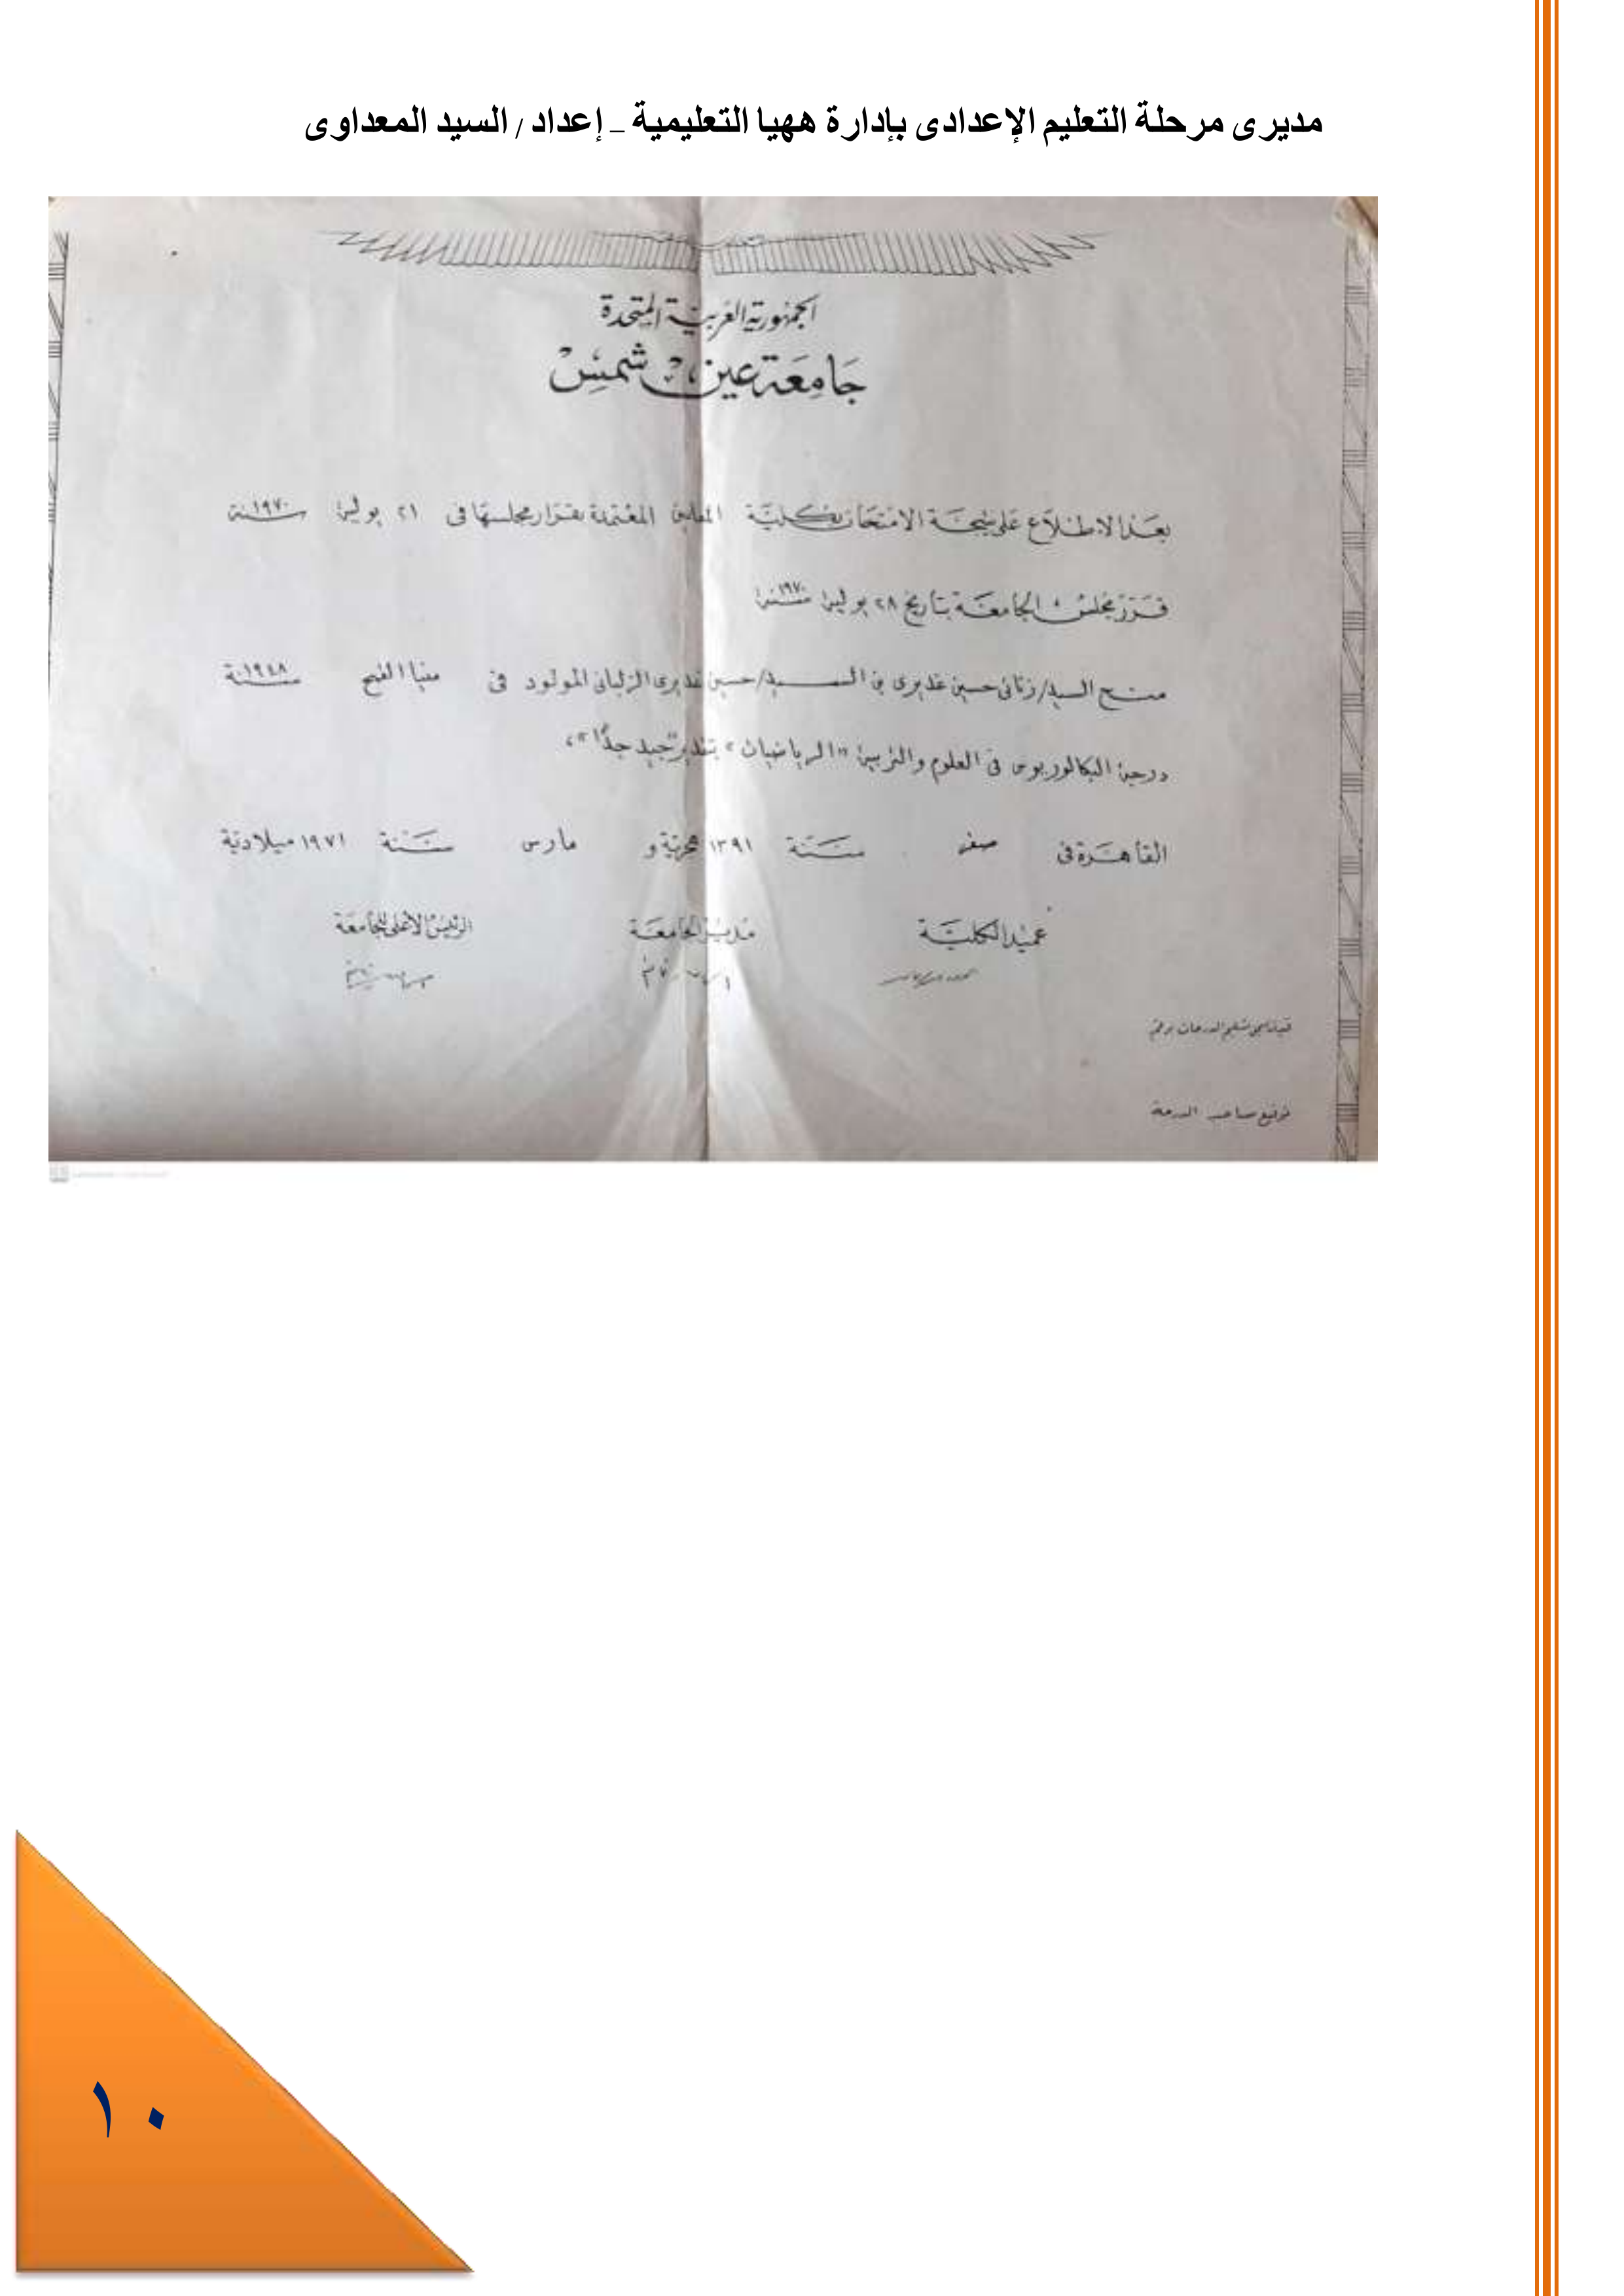 مديرى مرحلة التعليم الإعدادى بإدارة ههيا التعليمية _ إعداد / السيد المعداوى
الجمهورية العربية المتحدة
جامعة عين شمس
بعد الاطلاع على نتيجة الامتحان بكلية المعلمين المعتمدة بقرار مجلسها فى ٢١ يوليه سنة ١٩٧٠
قرر مجلس الجامعة بتاريخ ٢٨ يوليه سنة ١٩٧٠
منح السيد/ زناتى حسين غديرى بن السيد/ حسين غديرى الزلبانى المولود فى منيا القمح سنة ١٩٤٨
درجة البكالوريوس فى العلوم والتربية "الرياضيات" بتقدير "جيد جدًا"،
القاهرة فى صفر سنة ١٣٩١ هجرية و مارس سنة ١٩٧١ ميلادية
عميد الكلية مدير الجامعة الرئيس الأعلى للجامعة
توقيع صاحب الدرجة
١٠